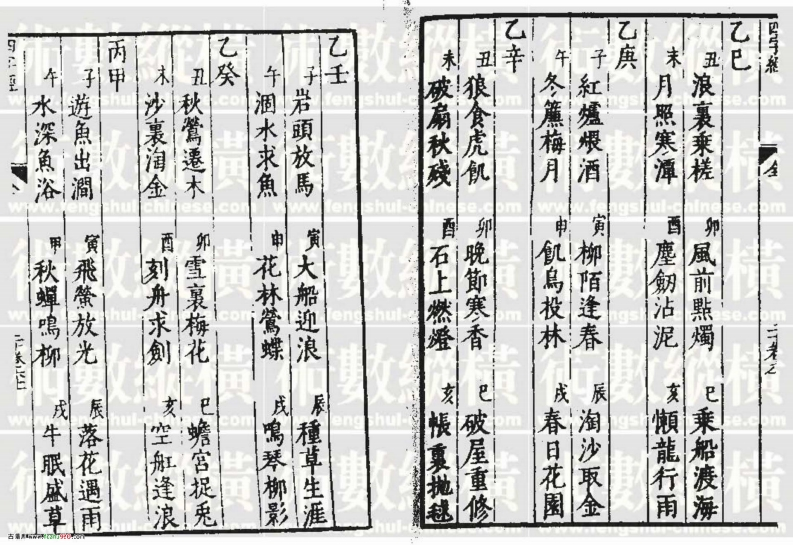 四字經
全
乙巳
丑 浪裏乗槎 卯 風前點燭 巳 乗船渡海
未 月照寒潭 酉 塵劒沾泥 亥 懶龍行雨
乙庚
子 紅爐煖酒 寅 柳陌逢春 辰 淘沙取金
午 冬簾梅月 申 飢鳥投林 戌 春日花園
乙辛
丑 狼食虎飢 卯 晚節寒香 巳 破屋重修
未 破扇秋殘 酉 石上燃燈 亥 帳裏抛毬
乙壬
子 岩頭放馬 寅 大船迎浪 辰 種草生涯
午 涸水求魚 申 花林鶯蝶 戌 鳴琴柳影
乙癸
丑 秋鶯遷木 卯 雪裏梅花 巳 蟾宮捉兎
未 沙裏淘金 酉 刻舟求劍 亥 空舡逢浪
丙甲
子 遊魚出澗 寅 飛螢放光 辰 落花遇雨
午 水深魚浴 甲 秋蟬鳴柳 戌 牛眠盛草
四字經
術數縱橫
www.fengshui-chinese.com